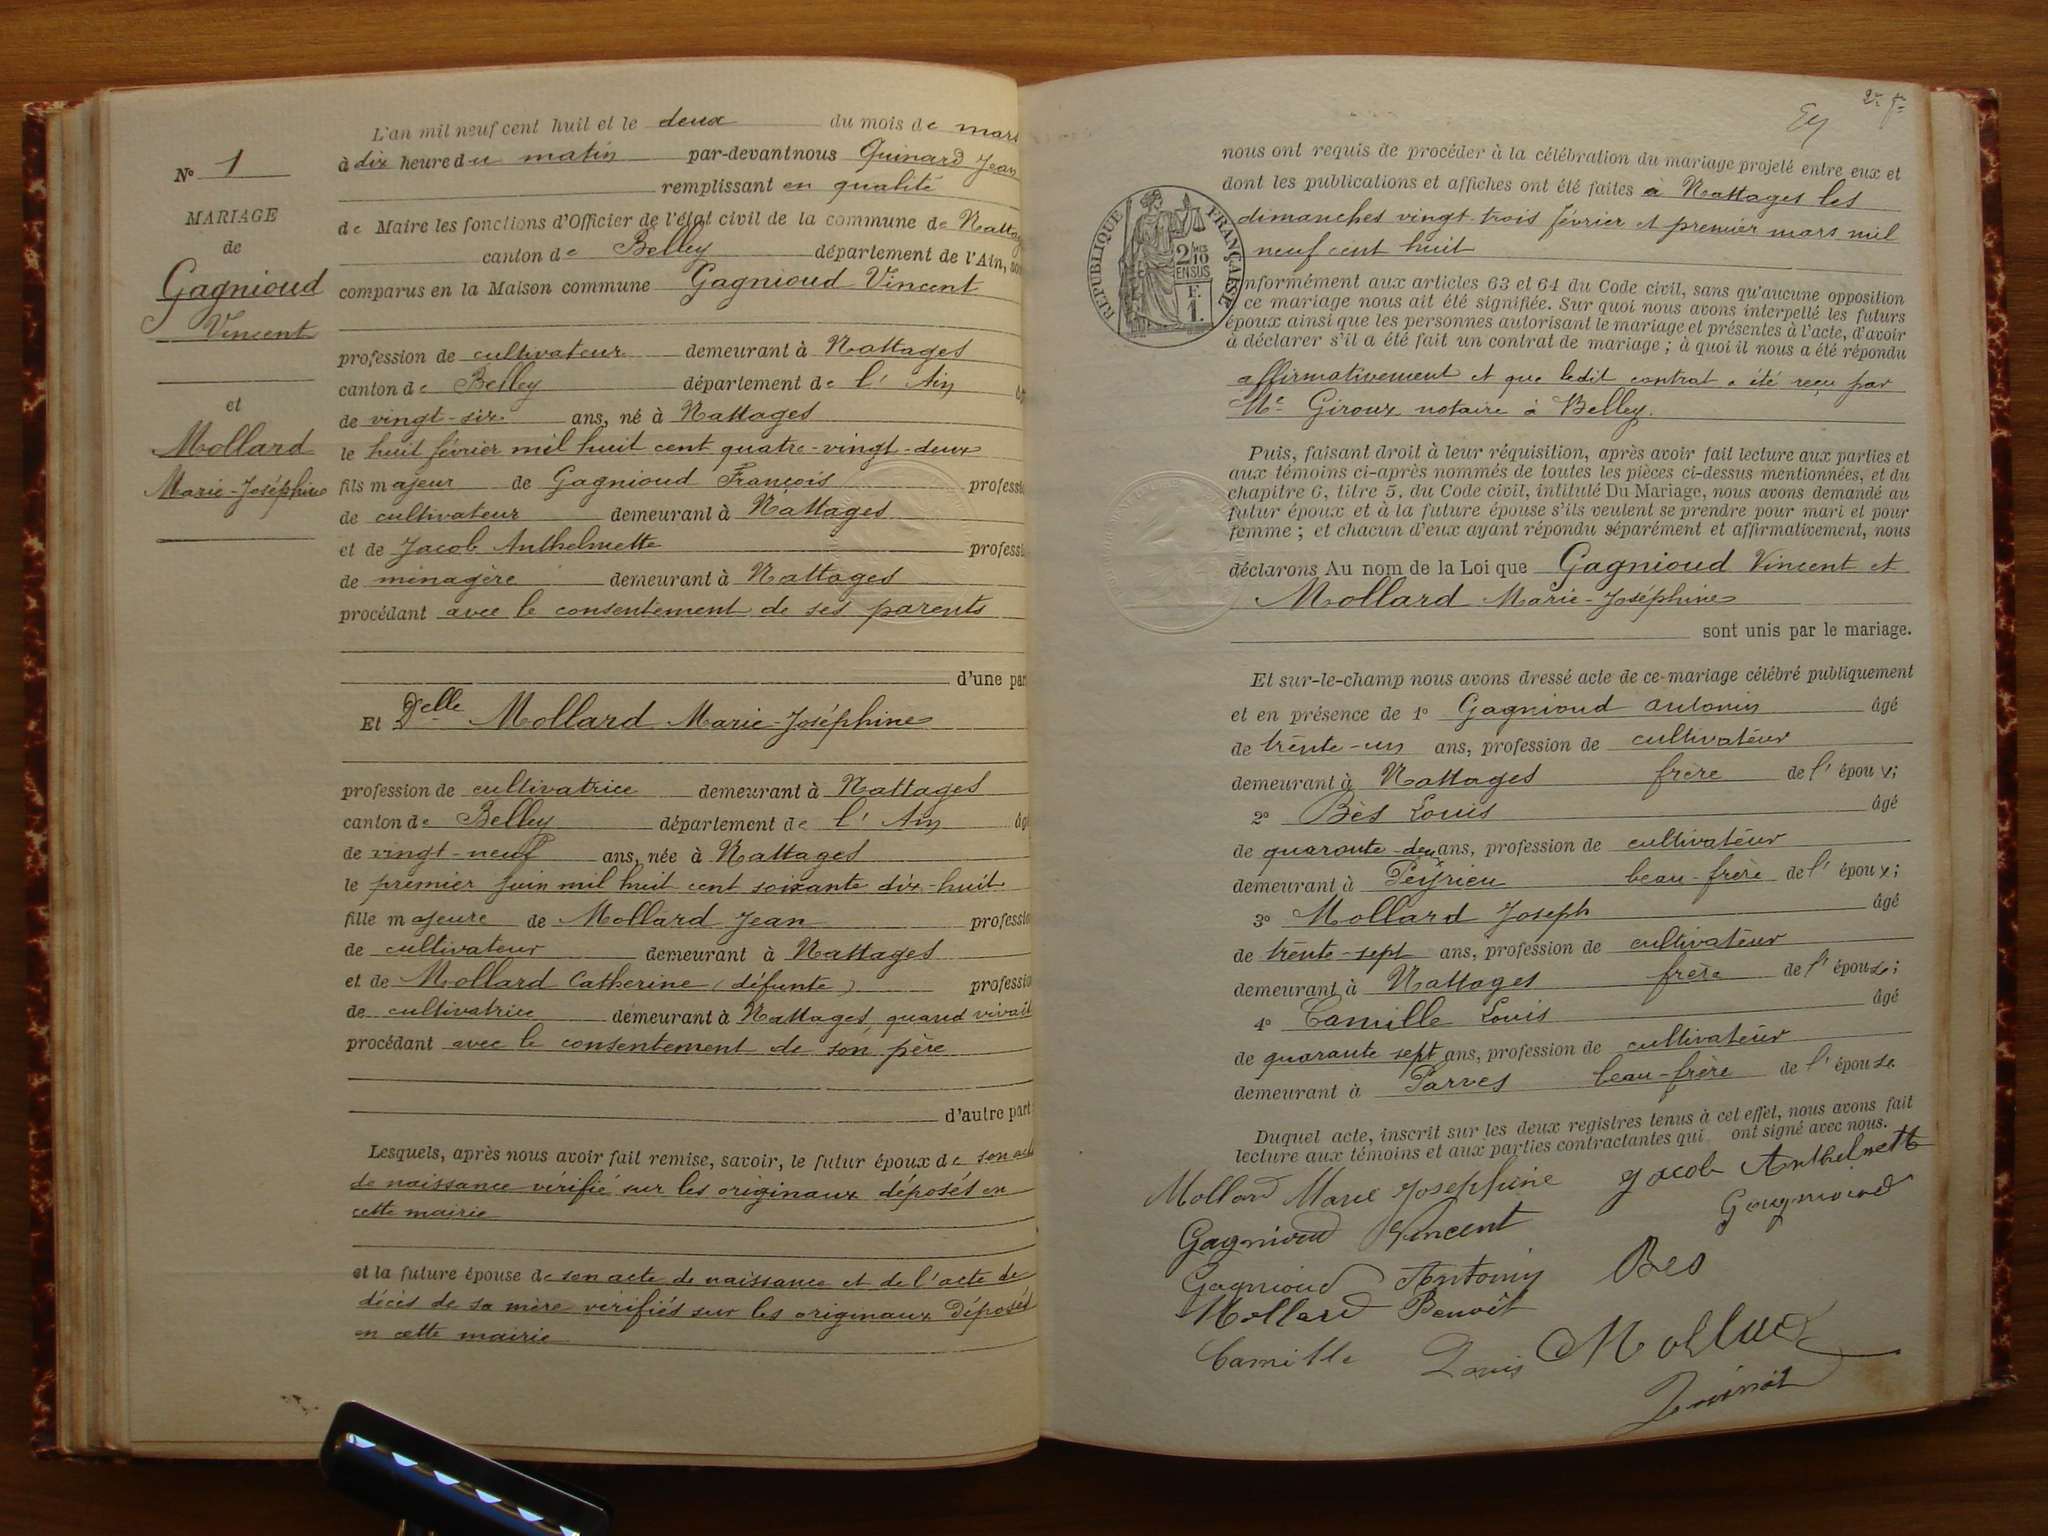 L'an mil neuf cent huit et le deux du mois de mars
N° 1
à dix heure du matin par-devant nous Quinard Jean
remplissant en qualité
MARIAGE
de Maire les fonctions d'Officier de l'état civil de la commune de Nattages
de
canton de Belley département de l'Ain, sont
Gagnioud
comparus en la Maison commune Gagnioud Vincent
Vincent
profession de cultivateur demeurant à Nattages
canton de Belley département de l'Ain
et
de vingt-six ans, né à Nattages
Mollard
le huit février mil huit cent quatre-vingt-deux
Marie-Joséphine
fils majeur de Gagnioud François profession
de cultivateur demeurant à Nattages
et de Jacob Anthelmette profession
de ménagère demeurant à Nattages
procédant avec le consentement de ses parents
d'une part
Et Delle Mollard Marie-Joséphine
profession de cultivatrice demeurant à Nattages
canton de Belley département de l'Ain âgé
de vingt-neuf ans, née à Nattages
le premier juin mil huit cent soixante dix-huit
fille majeure de Mollard Jean profession
de cultivateur demeurant à Nattages
et de Mollard Catherine (défunte) profession
de cultivatrice demeurant à Nattages, quand vivait
procédant avec le consentement de son père
d'autre part
Lesquels, après nous avoir fait remise, savoir, le futur époux de son acte
de naissance vérifié sur les originaux déposés en
cette mairie
et la future épouse de son acte de naissance et de l'acte de
décès de sa mère vérifiés sur les originaux déposés
en cette mairie
nous ont requis de procéder à la célébration du mariage projeté entre eux et
dont les publications et affiches ont été faites à Nattages les
dimanches vingt-trois février et premier mars mil
neuf cent huit
RÉPUBLIQUE FRANÇAISE
2/10 EN SUS
F. 1.
conformément aux articles 63 et 64 du Code civil, sans qu'aucune opposition
ce mariage nous ait été signifiée. Sur quoi nous avons interpellé les futurs
époux ainsi que les personnes autorisant le mariage et présentes à l'acte, d'avoir
à déclarer s'il a été fait un contrat de mariage ; à quoi il nous a été répondu
affirmativement et que ledit contrat a été reçu par
Me Giroux notaire à Belley.
Puis, faisant droit à leur réquisition, après avoir fait lecture aux parties et
aux témoins ci-après nommés de toutes les pièces ci-dessus mentionnées, et du
chapitre 6, titre 5, du Code civil, intitulé Du Mariage, nous avons demandé au
futur époux et à la future épouse s'ils veulent se prendre pour mari et pour
femme ; et chacun d'eux ayant répondu séparément et affirmativement, nous
déclarons Au nom de la Loi que Gagnioud Vincent et
Mollard Marie-Joséphine
sont unis par le mariage.
Et sur-le-champ nous avons dressé acte de ce mariage célébré publiquement
et en présence de 1° Gagnioud Antonin âgé
de trente-un ans, profession de cultivateur
demeurant à Nattages frère de l'époux;
2° Bès Louis âgé
de quarante-deux ans, profession de cultivateur
demeurant à Peyrieu beau-frère de l'époux;
3° Mollard Joseph âgé
de trente-sept ans, profession de cultivateur
demeurant à Nattages frère de l'épouse;
4° Camille Louis âgé
de quarante sept ans, profession de cultivateur
demeurant à Parves beau-frère de l'épouse
Duquel acte, inscrit sur les deux registres tenus à cet effet, nous avons fait
lecture aux témoins et aux parties contractantes qui ont signé avec nous.
Mollard Marie Josephine Jacob Anthelmette
Gagnioud Vincent Gagnioud
Gagnioud Antonin Bes
Mollard Benoît
Camille Louis